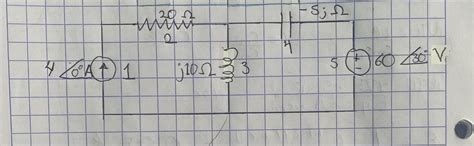 20 Ω
2
-5j Ω
4
4 ∠0° A
1
j10Ω
3
5
+
-
60 ∠30° V